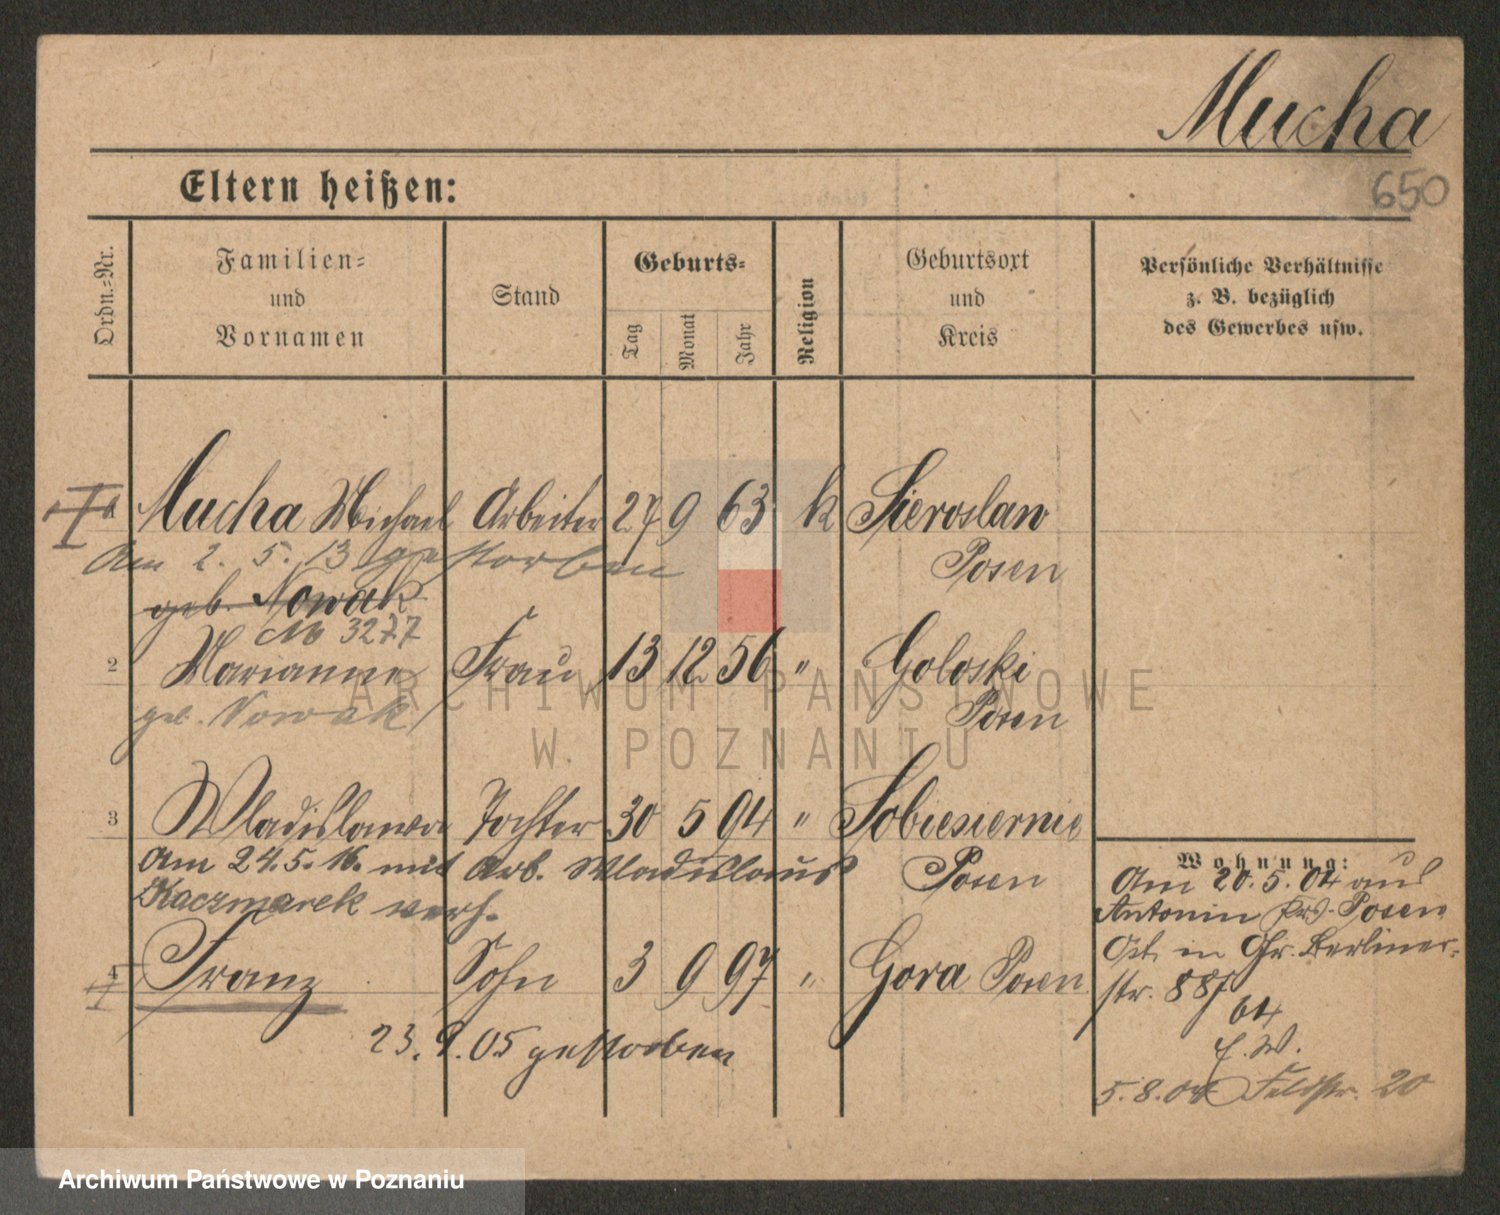 Mucha
650
Eltern heißen:
Ordn.-Nr.
Familien-
und
Vornamen
Stand
Geburts-
Tag
Monat
Jahr
Religion
Geburtsort
und
Kreis
Persönliche Verhältnisse
z. B. bezüglich
des Gewerbes usw.
Mucha Michael Arbeiter 27 9 63 k Sieroslaw
Posen
Am 2. 5. 13 gestorben
geb. Nowak
No 3277
2 Marianna Frau 13 12 56 " Goloski
geb. Nowak Posen
3 Wladislawa Tochter 30 5 94 " Sobiesiernie
Am 24.5.16. mit Arb. Wladislaus Posen
Kaczmarek verh.
4 Franz Sohn 3 9 97 " Gora Posen
23. 9. 05 gestorben
Wohnung:
Am 20. 5. 04 aus
Antonin Krs. Posen
Ost. in Gr. Berliner-
str. 88/
64
5.8.04 Feldstr. 20
ARCHIWUM PAŃSTWOWE
W POZNANIU
Archiwum Państwowe w Poznaniu